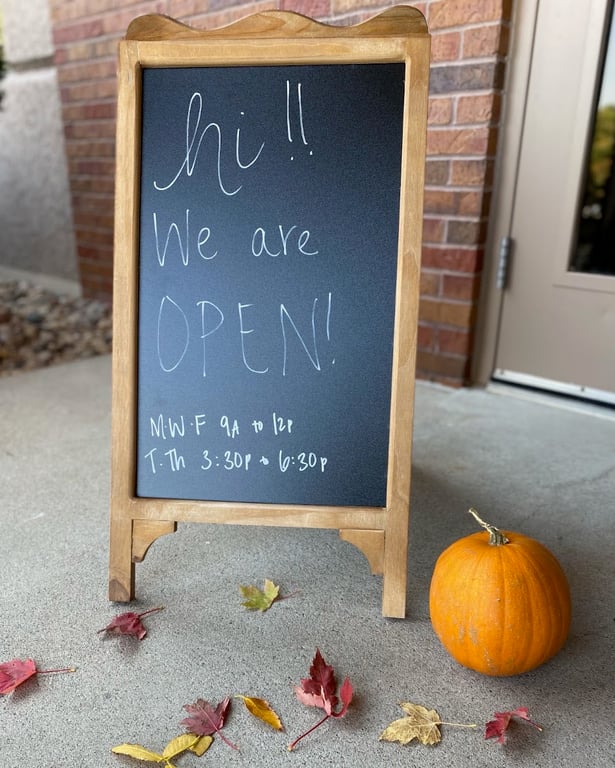 hi!!
We are
OPEN!
M·W·F 9A to 12P
T·Th 3:30P to 6:30P